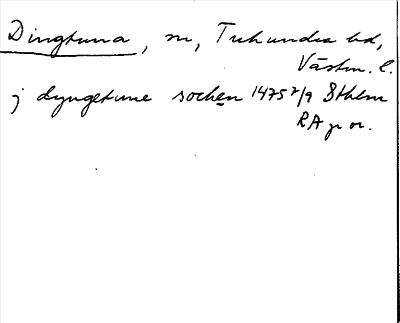 Dingtuna, sn, Tuhundra hd,
Västm. l.
j dyngetune sochen 1475 7/9 Sthlm
RAp or.